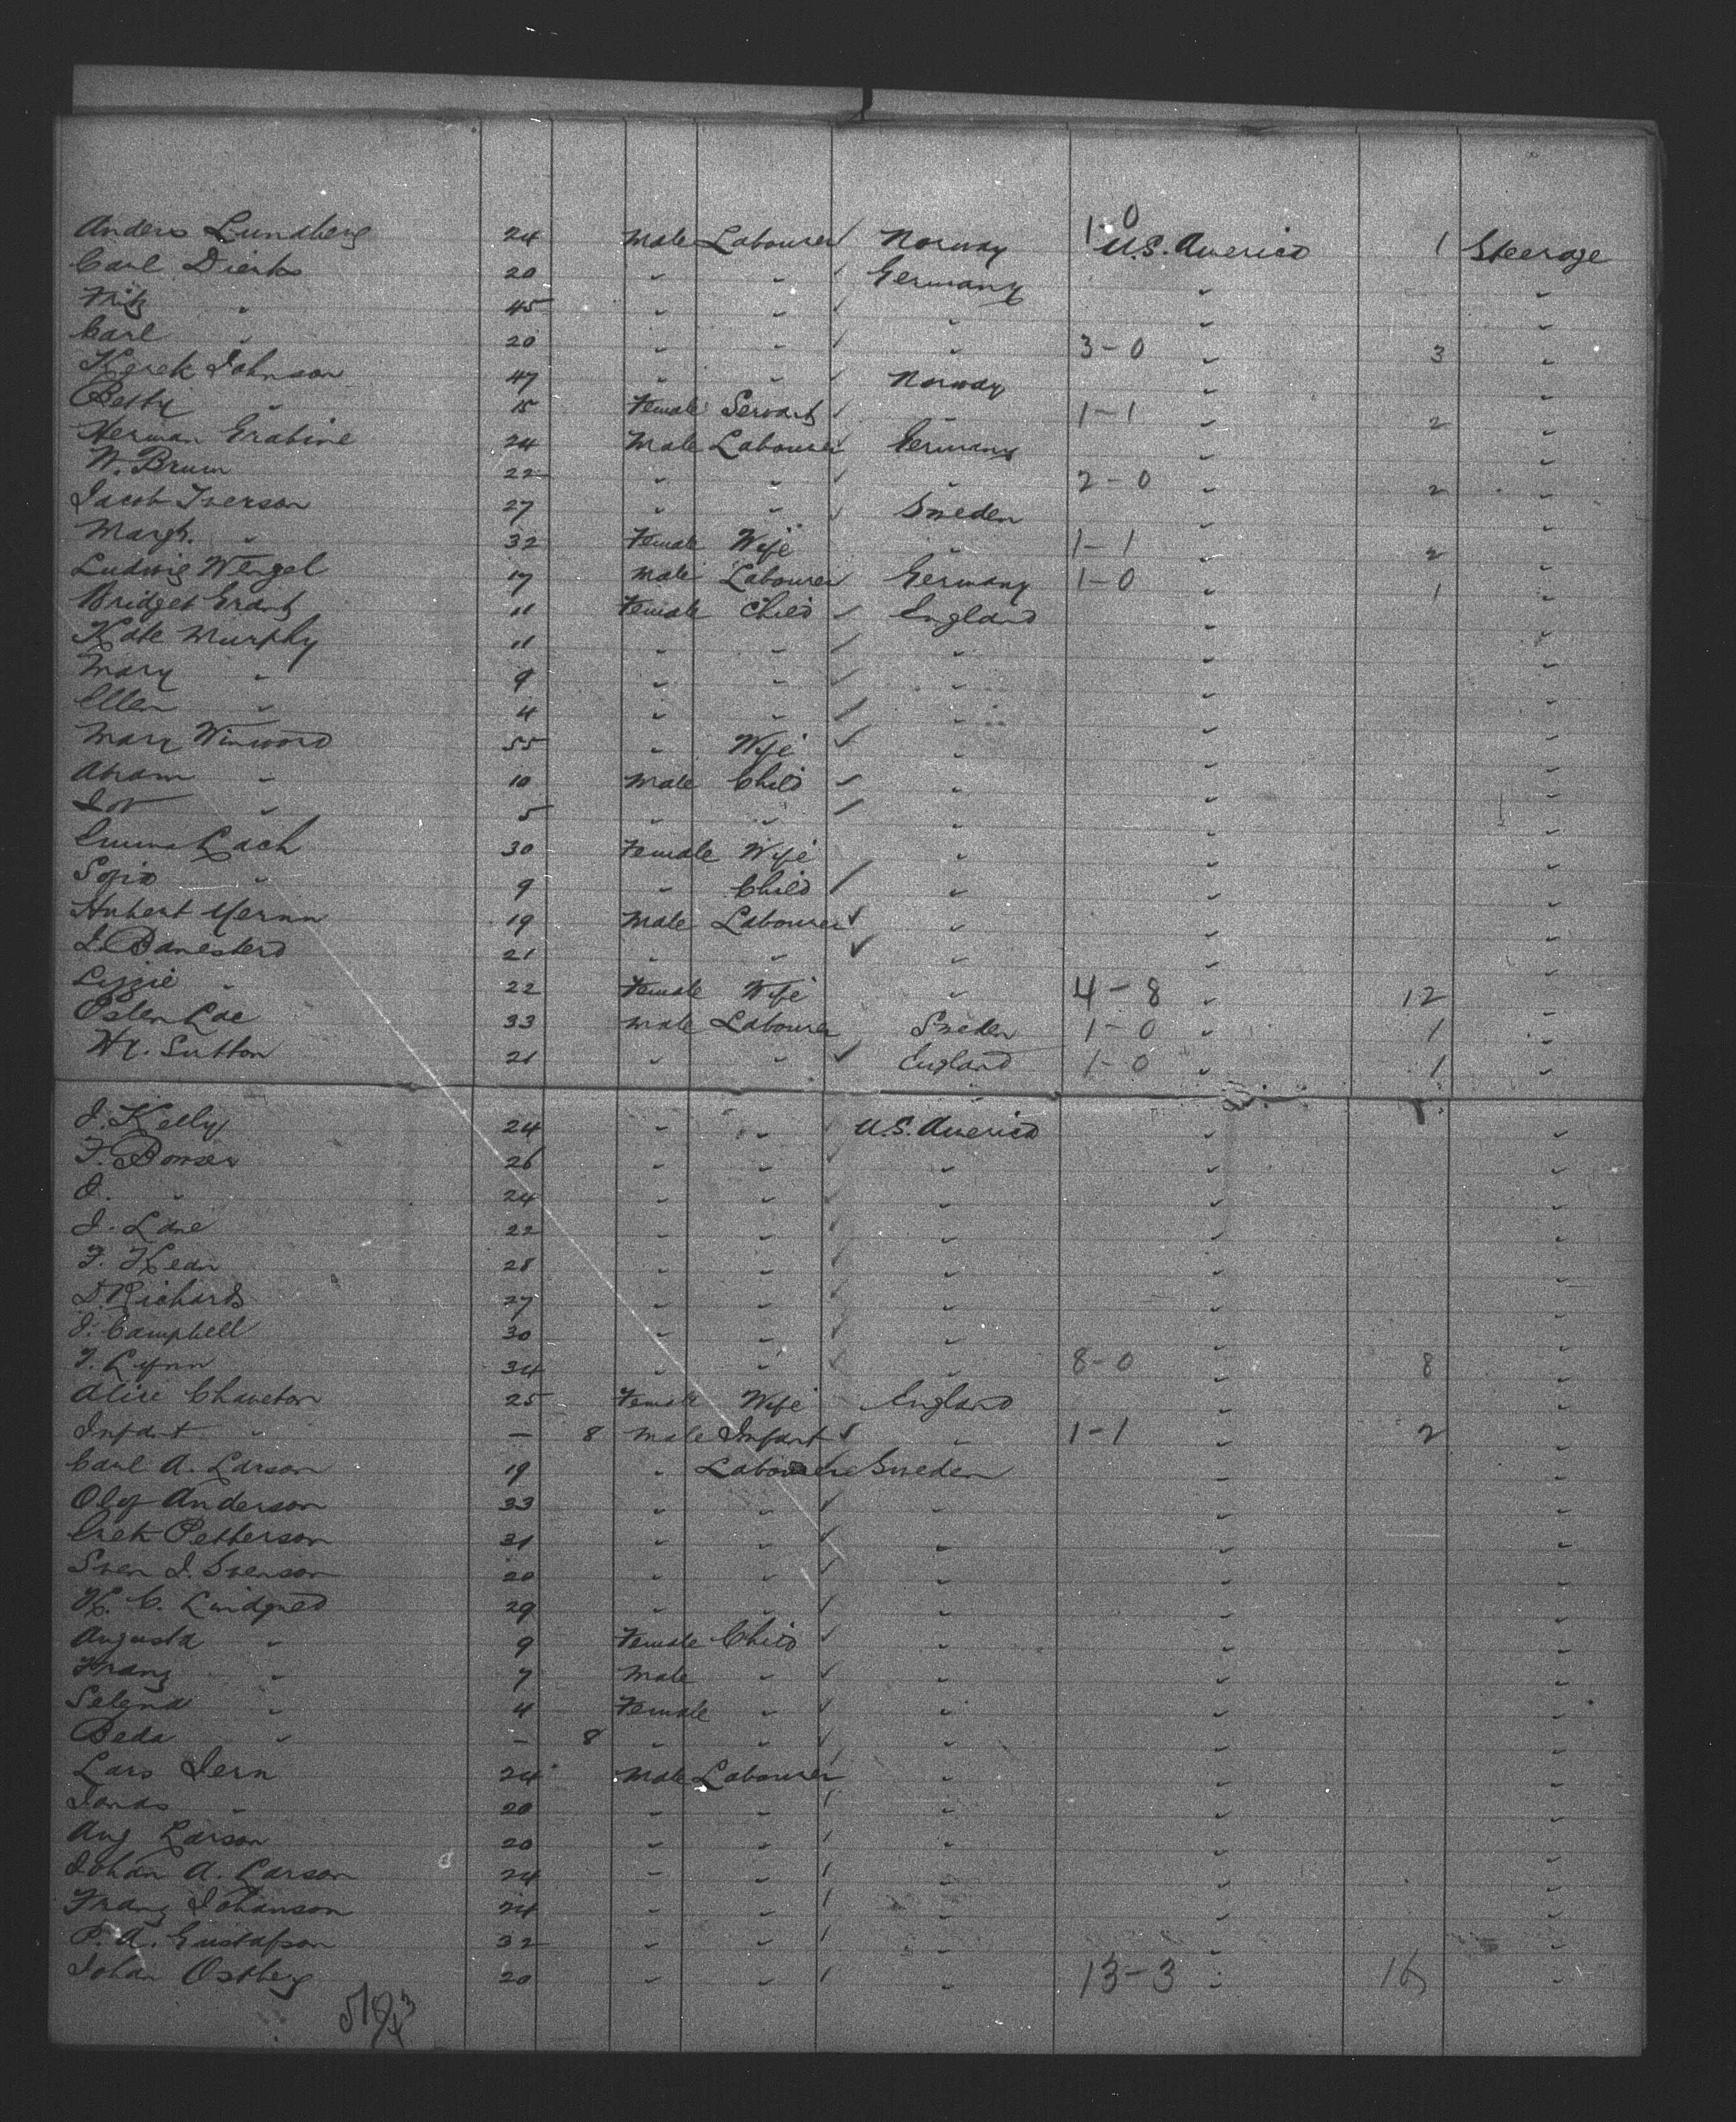 1-0
Anders Lundberg 24 Male Labourer ✓ Norway U.S. America 1 Steerage
Carl Dierks 20 " " ✓ Germany " "
Fritz " 45 " " ✓ " " "
Carl " 20 " " ✓ " 3-0 " 3 "
Johnson 47 " " ✓ Norway " "
Betty " 15 Female Servant ✓ " 1-1 " 2 "
Herman Erabine 24 Male Labourer ✓ Germany " "
W. Brum 22 " " ✓ " 2-0 " 2 "
Jacob Iverson 27 " " ✓ Sweden " "
Margt. " 32 Female Wife " 1-1 " 2 "
Ludwig Wengel 17 Male Labourer Germany 1-0 " 1 "
Bridget Grant 11 Female Child ✓ England " "
Kate Murphy 11 " " ✓ " " "
Mary " 9 " " ✓ " " "
Ellen " 4 " " ✓ " " "
Mary Winword 55 " Wife ✓ " " "
Abram " 10 Male Child ✓ " " "
" 5 " " ✓ " " "
Emma Lach 30 Female Wife " " "
Sofia " 9 " Child ✓ " " "
Hubert 19 Male Labourer ✓ " " "
J. Banesterd 21 " " ✓ " " "
Lizzie " 22 Female Wife " 4-8 " 12 "
Osten Lae 33 Male Labourer Sweden 1-0 " 1 "
Hy. Sutton 21 " " ✓ England 1-0 " 1 "
J. Kelly 24 " " ✓ U.S. America " "
F. Bowser 26 " " ✓ " " "
J. " 24 " " ✓ " " "
J. Lane 22 " " ✓ " " "
F. Kean 28 " " ✓ " " "
D. Richards 27 " " ✓ " " "
J. Campbell 30 " " ✓ " " "
T. Lynn 34 " " ✓ " 8-0 " 8 "
Alice Chaveton 25 Female Wife England " "
Infant " — 8 Male Infant ✓ " 1-1 " 2 "
Carl A. Larson 19 " Labourer Sweden " "
Olof Anderson 33 " " ✓ " " "
Petterson 31 " " ✓ " " "
Sven J. Svenson 20 " " ✓ " " "
C. Lindqued 29 " " ✓ " " "
Augusta " 9 Female Child ✓ " " "
Franz " 7 Male " ✓ " " "
Selgna " 4 Female " ✓ " " "
Beda " — 8 " " ✓ " " "
Lars Jern 24 Male Labourer " " "
Jonas " 20 " " ✓ " " "
Aug Larson 20 " " ✓ " " "
Johan A. Larson 24 " " ✓ " " "
Franz Johanson 24 " " ✓ " " "
P. A. Gustafson 32 " " ✓ " " "
Johan Ostberg 20 " " ✓ " 13-3 " 16 "